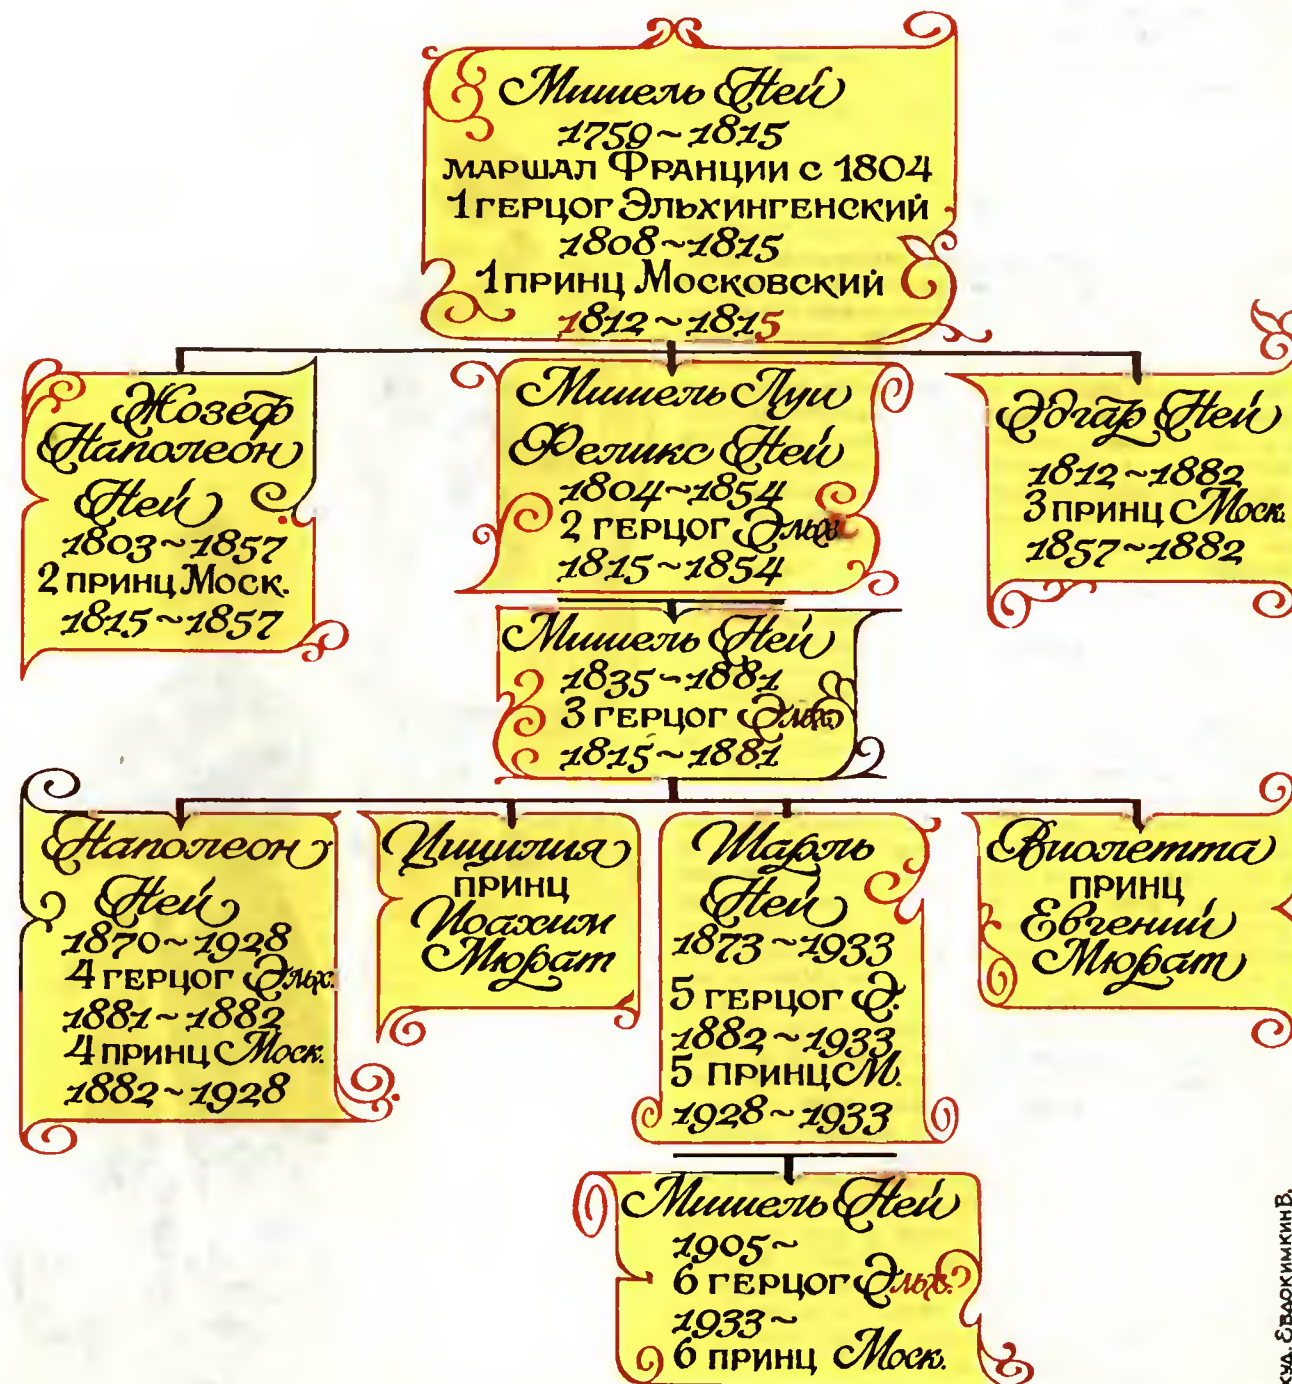 Мишель Ней
1759~1815
маршал Франции с 1804
1 герцог Эльхингенский
1808~1815
1 принц Московский
1812~1815
Жозеф
Наполеон
Ней
1803~1857
2 принц Моск.
1815~1857
Мишель Луи
Феликс Ней
1804~1854
2 герцог Эльх.
1815~1854
Эдгар Ней
1812~1882
3 принц Моск.
1857~1882
Мишель Ней
1835~1881
3 герцог Эльх.
1815~1881
Наполеон
Ней
1870~1928
4 герцог Эльх.
1881~1882
4 принц Моск.
1882~1928
Цицилия
принц
Иоахим
Мюрат
Шарль
Ней
1873~1933
5 герцог Э.
1882~1933
5 принц М.
1928~1933
Виолетта
принц
Евгений
Мюрат
Мишель Ней
1905~
6 герцог Эльх.
1933~
6 принц Моск.
худ. Евдокимкин В.